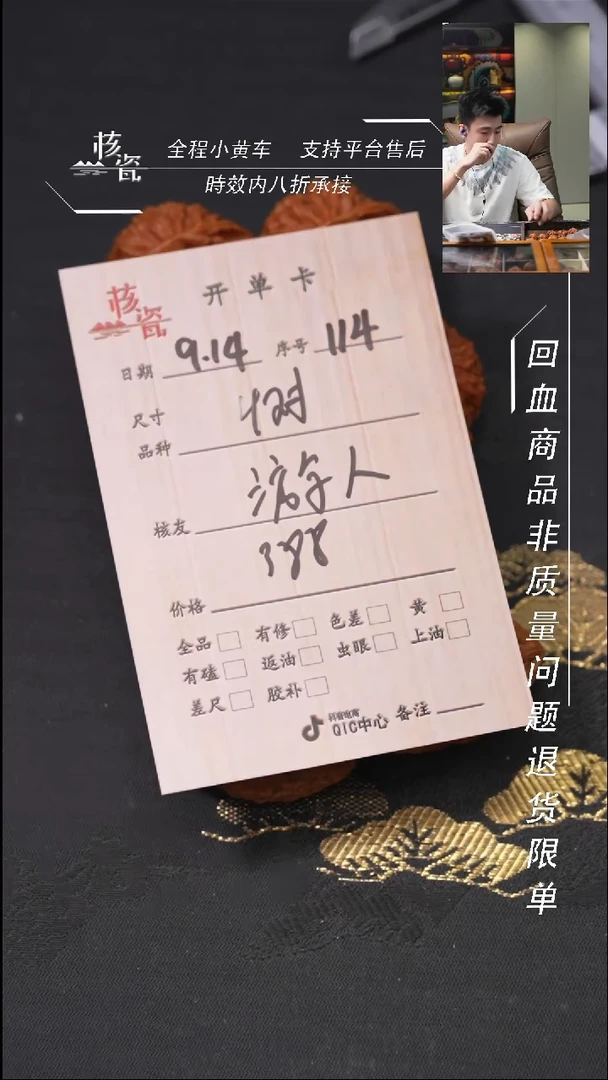 核瓷
全程小黄车 支持平台售后
時效内八折承接
回血商品非质量问题退货限单
核瓷
开单卡
日期 9.14 序号 114
尺寸
品种 树
核友 游乐人
价格 388
全品 有修 色差 黄
有磕 返油 虫眼 上油
差尺 胶补
抖音电商
QIC中心 备注